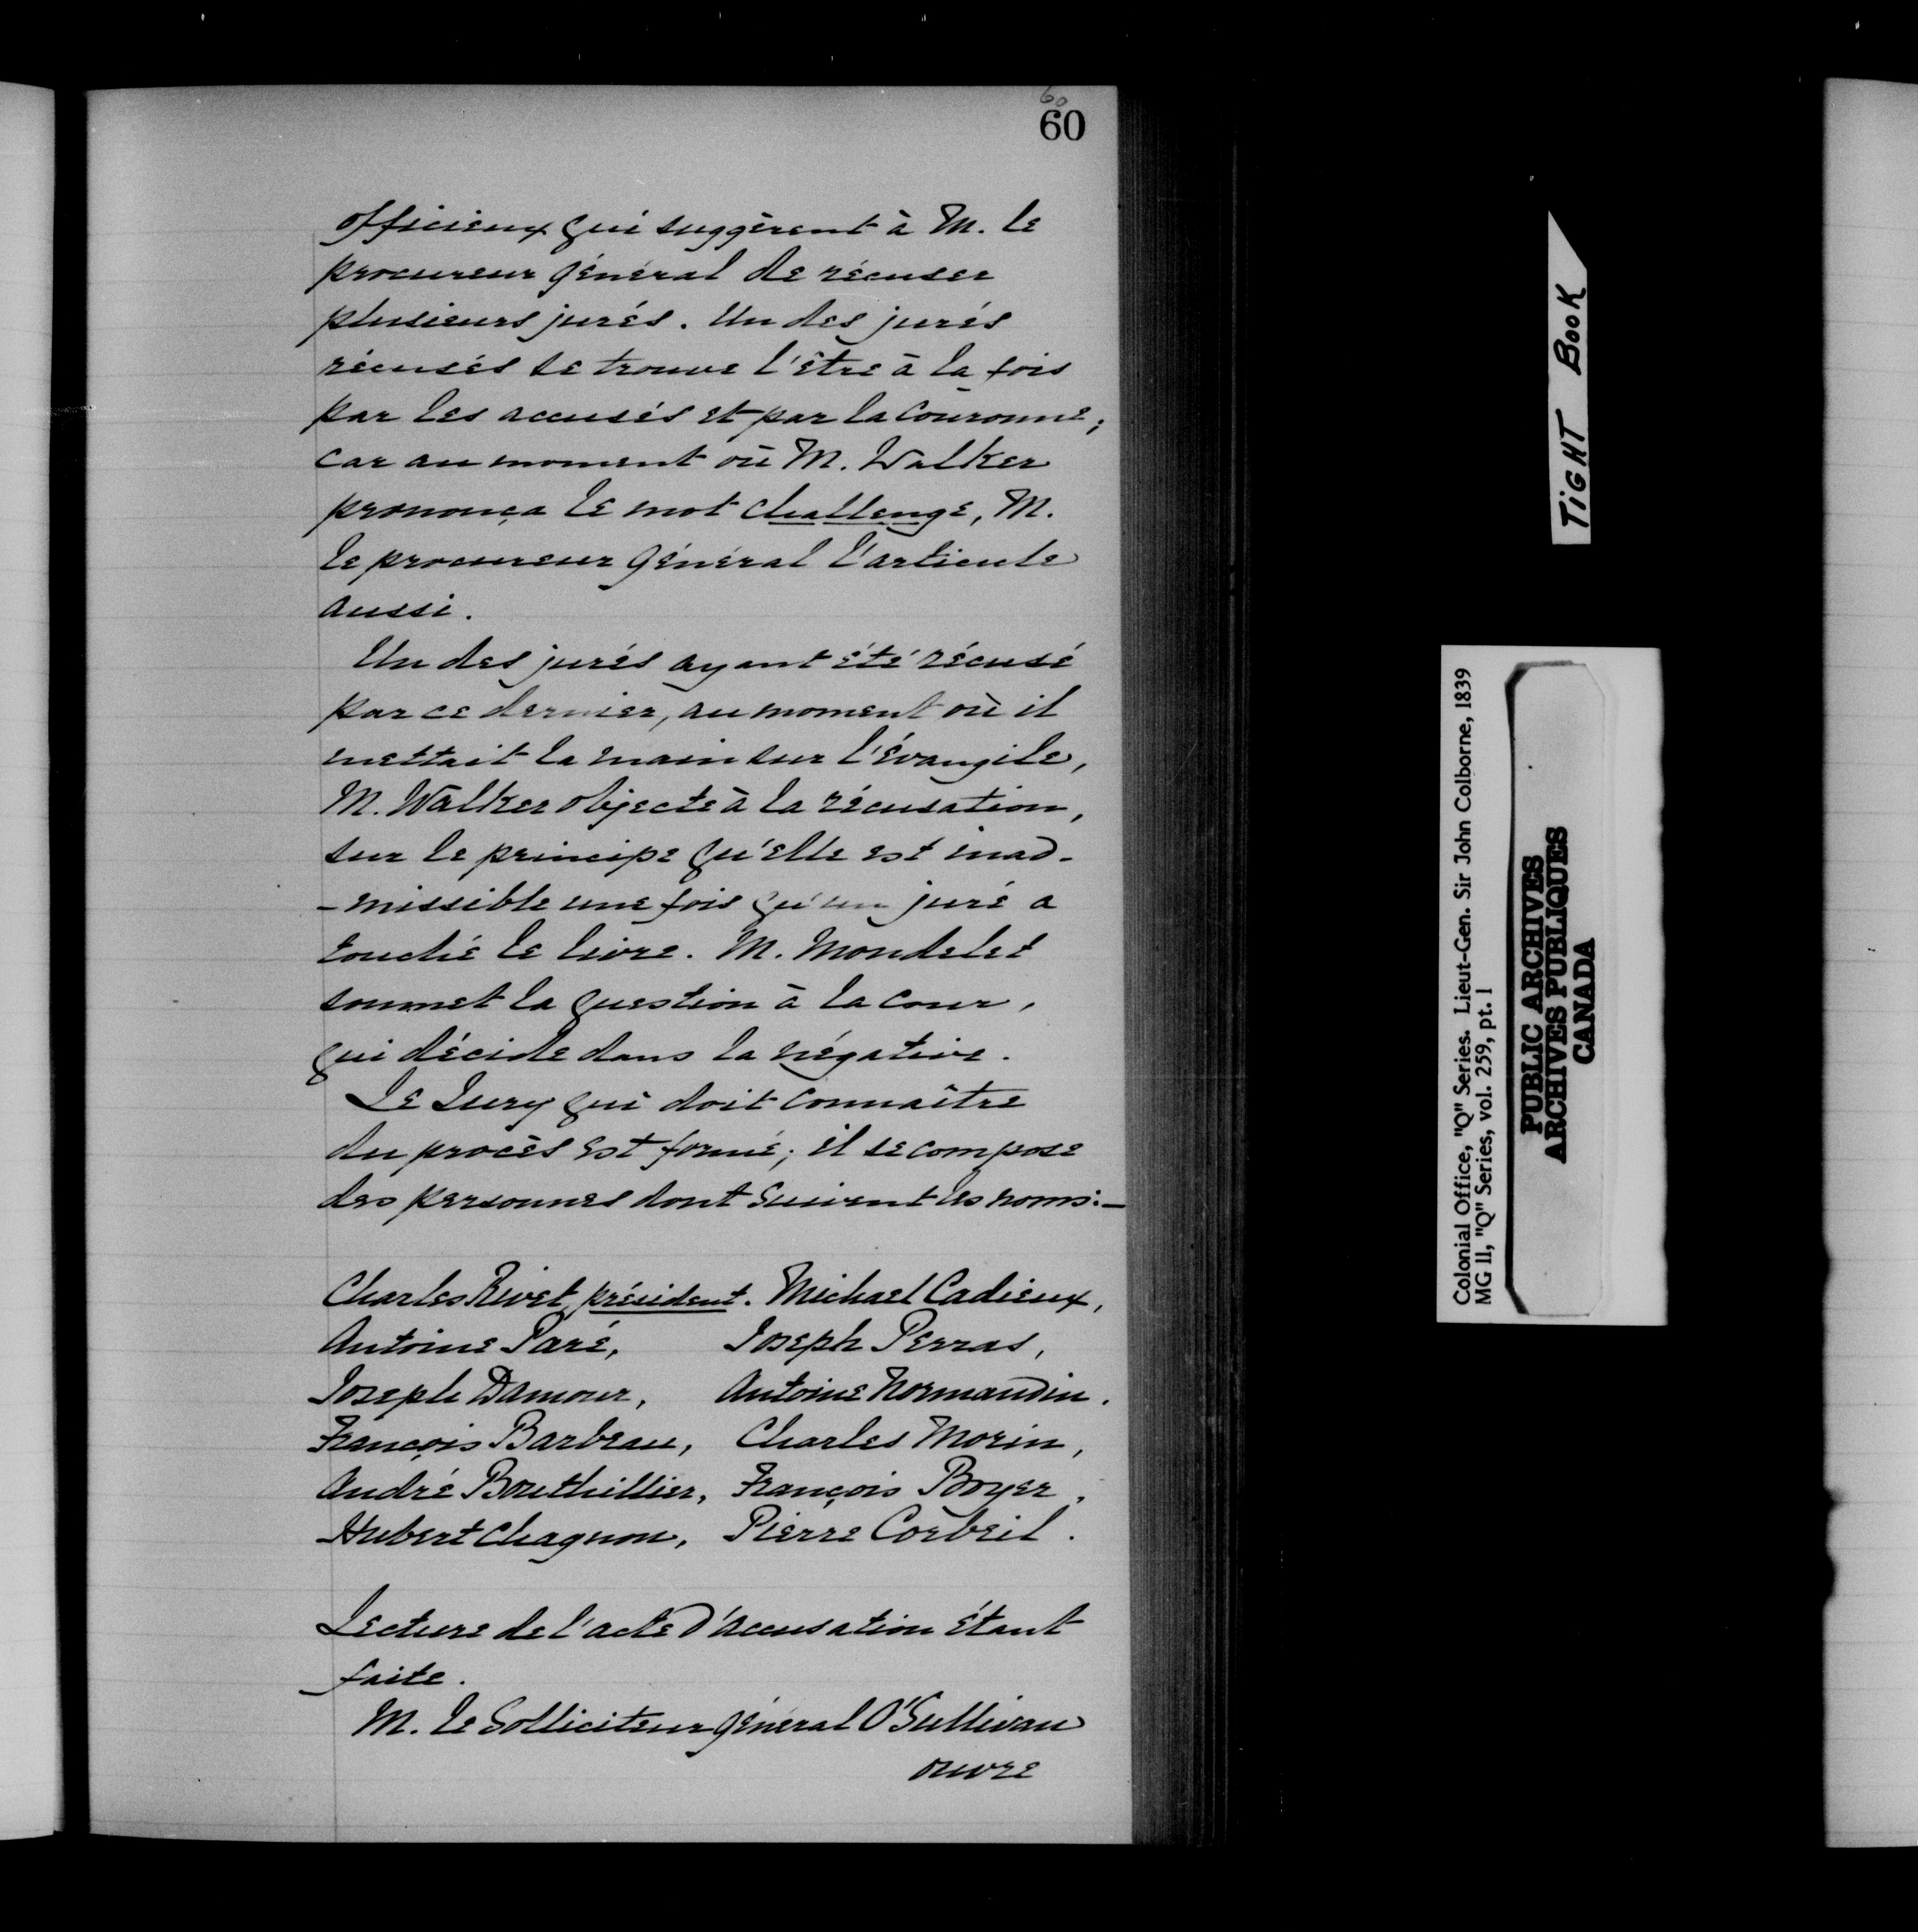 60
60
officieux qui suggèrent à M. le
procureur général de récuser
plusieurs jurés. Un des jurés
récusés se trouve l'être à la fois
par les accusés et par la couronne;
car au moment où M. Walker
prononça le mot challenge, M.
le procureur général l'articule
aussi.
Un des jurés ayant été récusé
par ce dernier, au moment où il
mettait la main sur l'Évangile,
M. Walker objecte à la récusation,
sur le principe qu'elle est inad-
-missible une fois qu'un juré a
touché le livre. M. Mondelet
soumet la question à la cour,
qui décide dans la négative.
Le Jury qui doit connaître
du procès est formé; il se compose
des personnes dont suivent les noms:—
Charles Rivet, président. Michael Cadieux,
Antoine Paré, Joseph Perras,
Joseph Damour, Antoine Normandin.
François Barbeau, Charles Morin,
André Bouthillier, François Boyer,
Hubert Chagnon, Pierre Corbeil.
Lecture de l'acte d'accusation étant
faite.
M. le Solliciteur général O'Sullivan
ouvre
TIGHT BOOK
Colonial Office, "Q" Series. Lieut-Gen. Sir John Colborne, 1839
MG 11, "Q" Series, vol. 259, pt. 1
PUBLIC ARCHIVES
ARCHIVES PUBLIQUES
CANADA